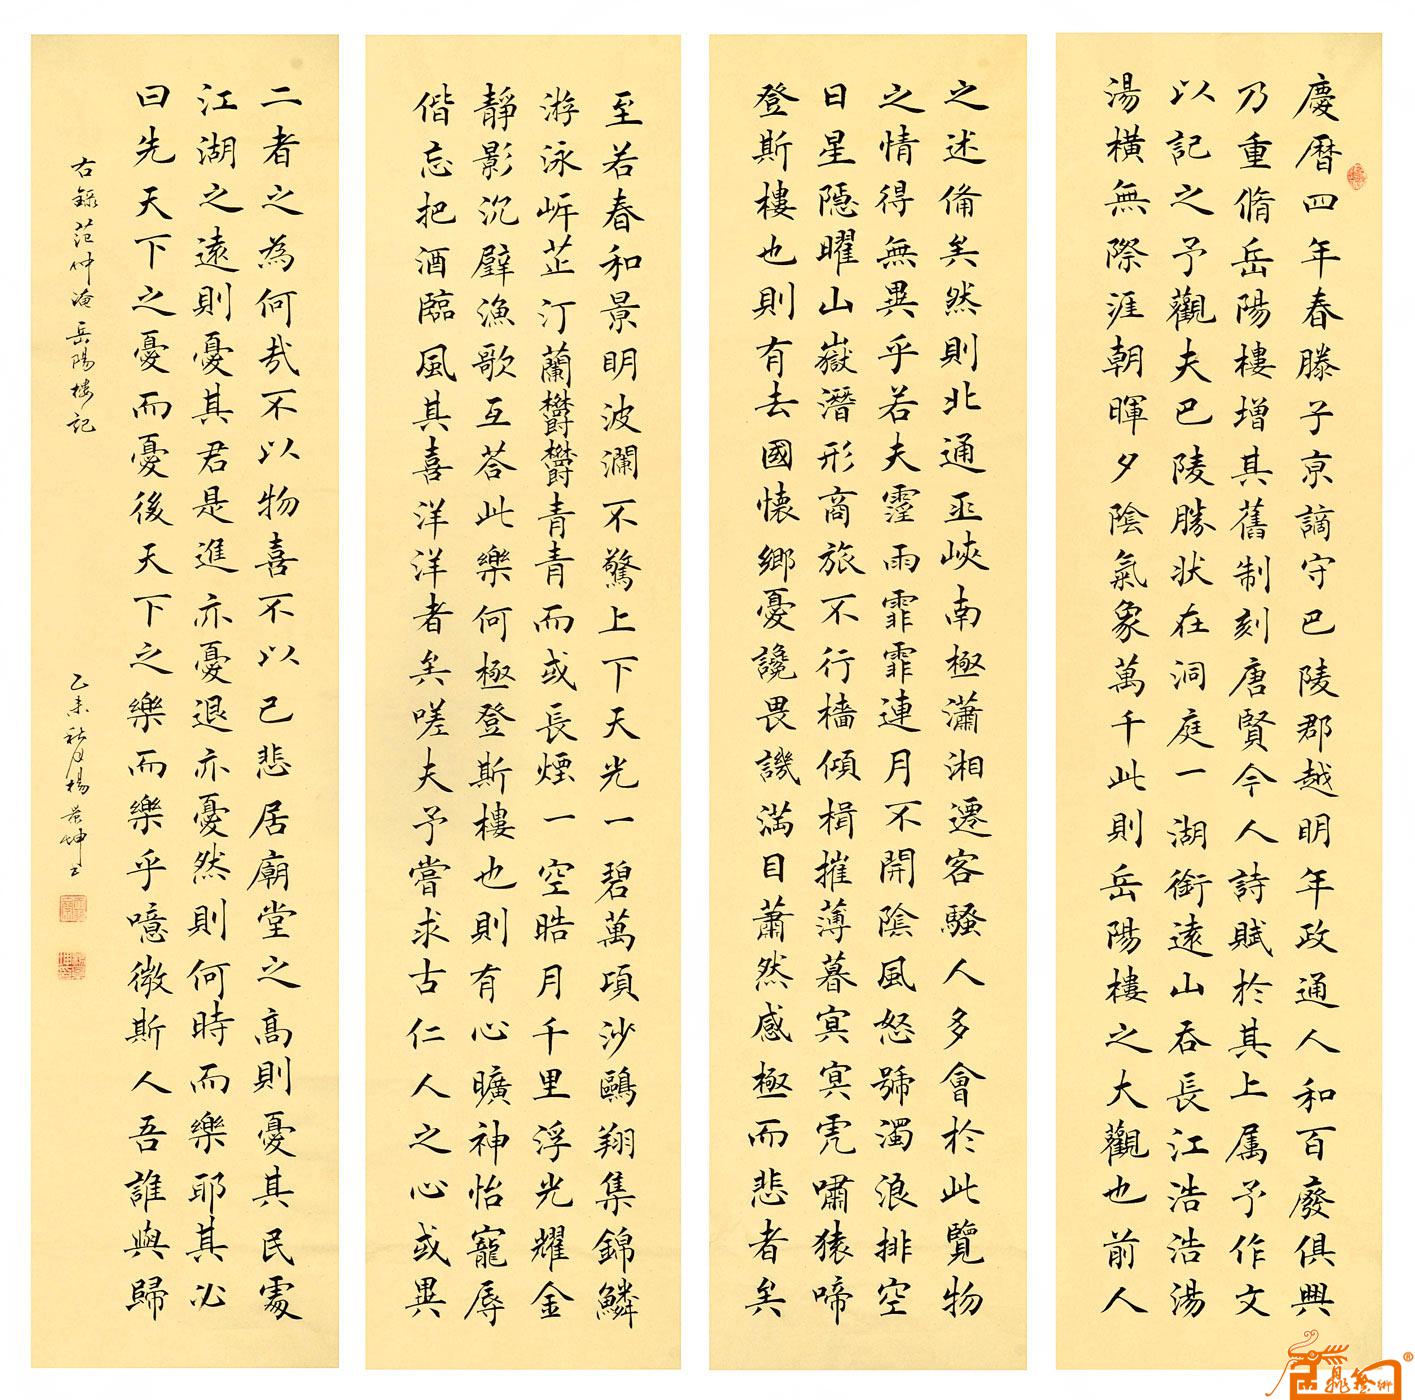 慶曆四年春滕子京謫守巴陵郡越明年政通人和百廢俱興
乃重脩岳陽樓增其舊制刻唐賢今人詩賦於其上属予作文
以記之予觀夫巴陵勝状在洞庭一湖銜遠山吞長江浩浩湯
湯橫無際涯朝暉夕陰氣象萬千此則岳陽樓之大觀也前人
之述俻矣然則北通巫峽南極瀟湘遷客騷人多會於此覽物
之情得無異乎若夫霪雨霏霏連月不開陰風怒號濁浪排空
日星隱曜山嶽潛形商旅不行檣傾楫摧薄暮冥冥虎嘯猿啼
登斯樓也則有去國懷鄉憂讒畏譏滿目蕭然感極而悲者矣
至若春和景明波瀾不驚上下天光一碧萬頃沙鷗翔集錦鱗
游泳岸芷汀蘭欝欝青青而或長煙一空皓月千里浮光耀金
靜影沉璧漁歌互荅此樂何極登斯樓也則有心曠神怡寵辱
偕忘把酒臨風其喜洋洋者矣嗟夫予嘗求古仁人之心或異
二者之為何哉不以物喜不以己悲居廟堂之高則憂其民處
江湖之遠則憂其君是進亦憂退亦憂然則何時而樂耶其必
曰先天下之憂而憂後天下之樂而樂乎噫微斯人吾誰與歸
右錄范仲淹岳陽樓記
乙未秋月楊景坤書